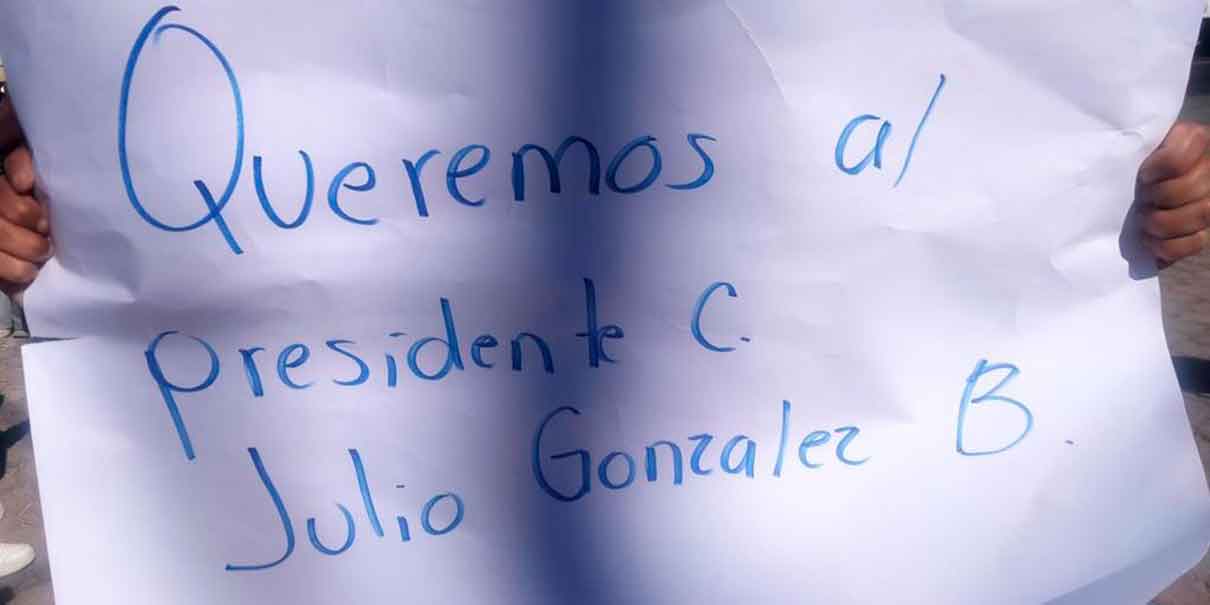 Queremos al
presidente C.
Julio Gonzalez B.